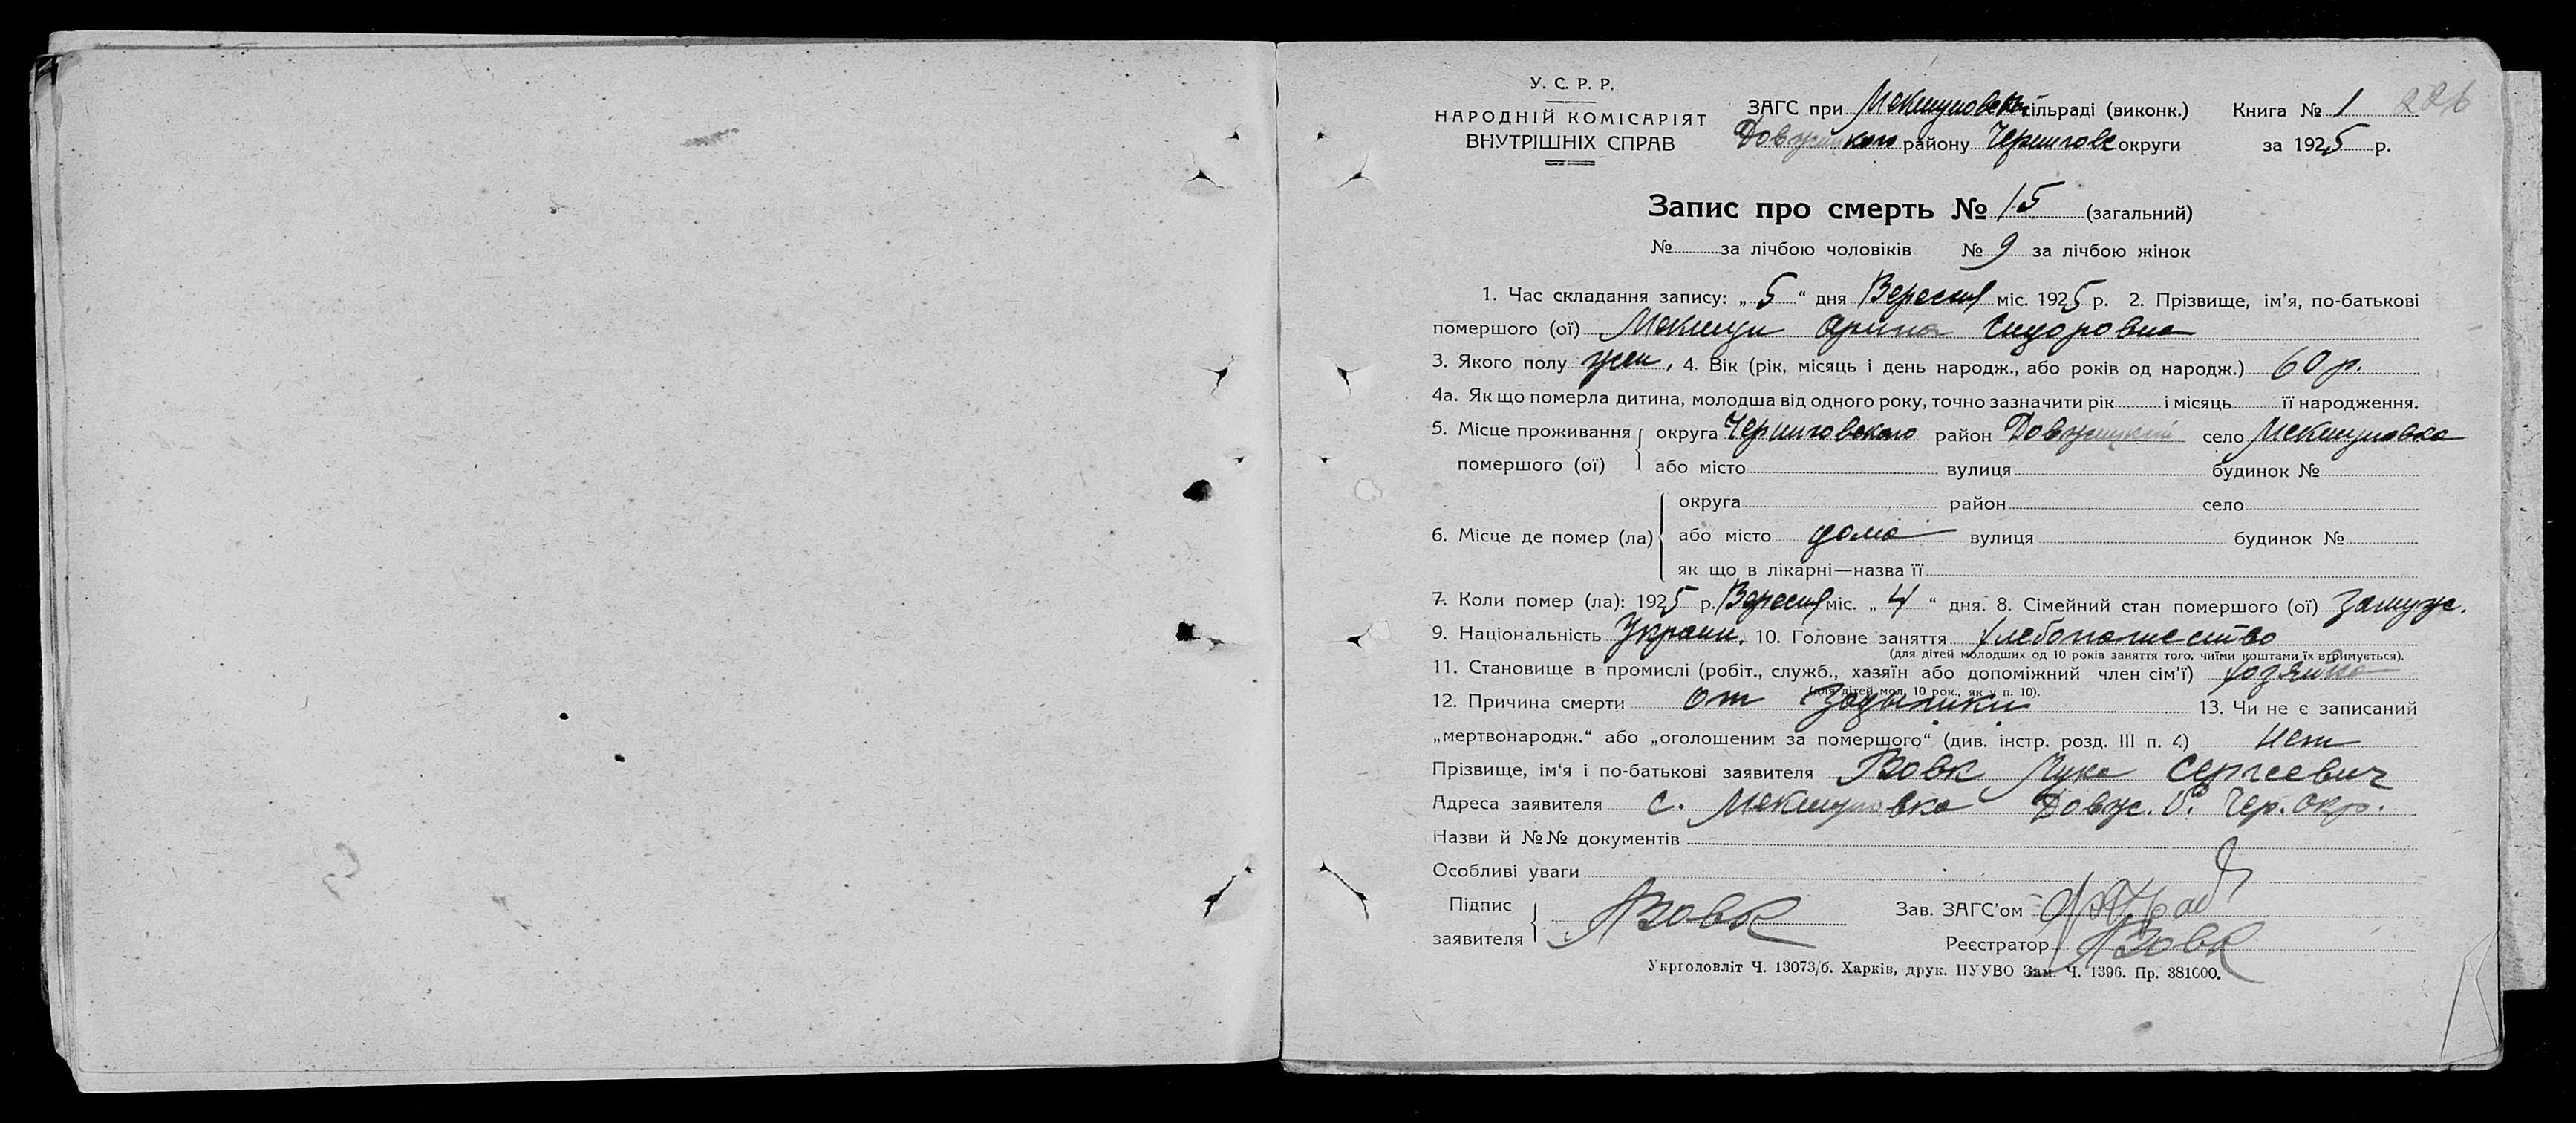 У. С. Р. Р.
НАРОДНІЙ КОМІСАРІЯТ
ВНУТРІШНІХ СПРАВ
ЗАГС при Мекшуновськ сільраді (виконк.) Книга № 1 226
Довжицького району Черниговс округи за 1925 р.
Запис про смерть № 15 (загальний)
№ за лічбою чоловіків № 9 за лічбою жінок
1. Час складання запису: „ 5 “ дня Вересня міс. 1925 р. 2. Прізвище, ім’я, по-батькові
помершого (ої) Мекшун Арина Сидоровна
3. Якого полу жен, 4. Вік (рік, місяць і день народж., або років од народж.) 60 р.
4а. Як що померла дитина, молодша від одного року, точно зазначити рік і місяць її народження.
5. Місце проживання округа Черниговского район Довжицкий село Мекшуновка
помершого (ої) або місто вулиця будинок №
округа район село
6. Місце де помер (ла) або місто дома вулиця будинок №
як що в лікарні—назва її
7. Коли помер (ла): 1925 р. Вересня міс. „ 4 “ дня. 8. Сімейний стан помершого (ої) Замуж.
9. Національність Україн, 10. Головне заняття хлебопашество
(для дітей молодших од 10 років заняття того, чиїми коштами їх втримується).
11. Становище в промислі (робіт., служб., хазяїн або допоміжний член сім’ї) хозяйка
(для дітей мол. 10 рок., як у п. 10).
12. Причина смерти от Задышки 13. Чи не є записаний
„мертвонародж.“ або „оголошеним за помершого“ (див. інстр. розд. III п. 4) нет
Прізвище, ім‘я і по-батькові заявителя Вовк Лука Сергеевич
Адреса заявителя с. Мекшуновка Довж. р. Чер. окр.
Назви й №№ документів
Особливі уваги
Підпис
заявителя Вовк
Зав. ЗАГС’ом
Реєстратор Вовк
Укрголовліт Ч. 13073/б. Харків, друк. ПУУВО Зам. Ч. 1396. Пр. 381000.